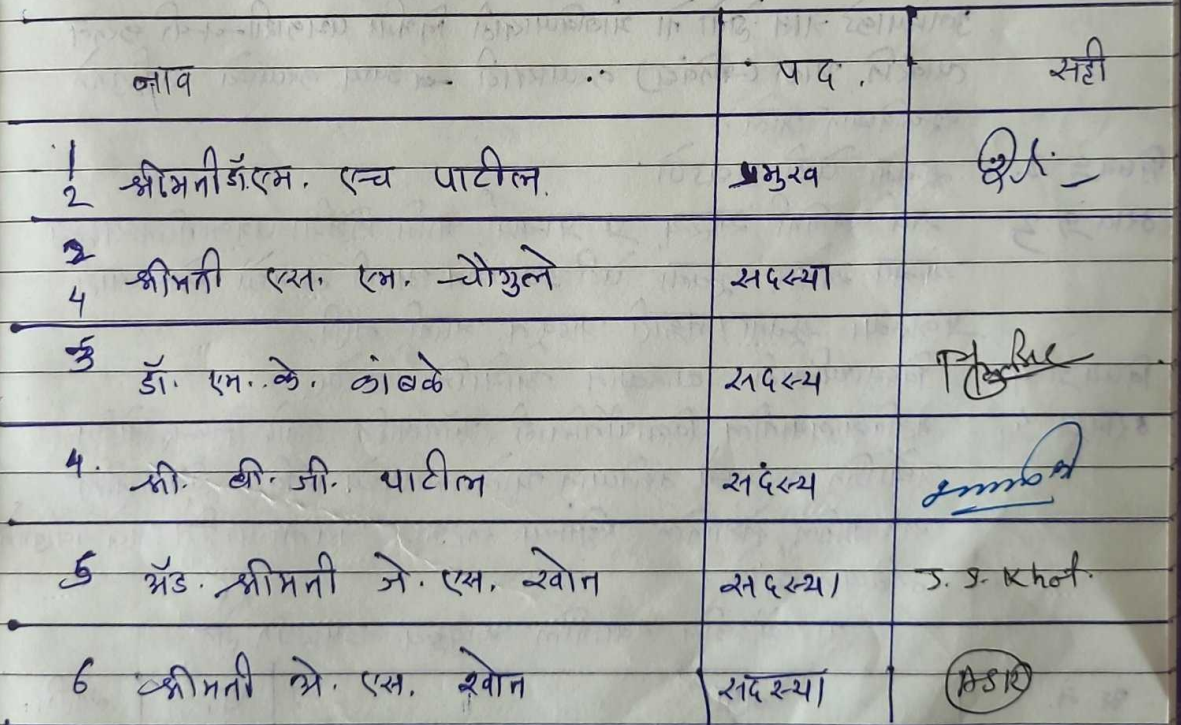 नाव पद सही
1 2 श्रीमती डॉ. एम. एच पाटील. प्रमुख
2 4 श्रीमती एस. एम. चौगुले सदस्या
3 डॉ. एम. के. कांबळे सदस्य
4. श्री. बी. जी. पाटील सदस्य
5 ॲड. श्रीमती जे. एस. खोत सदस्या J. S. Khot.
6 श्रीमती ओ. एस. खोत सदस्या